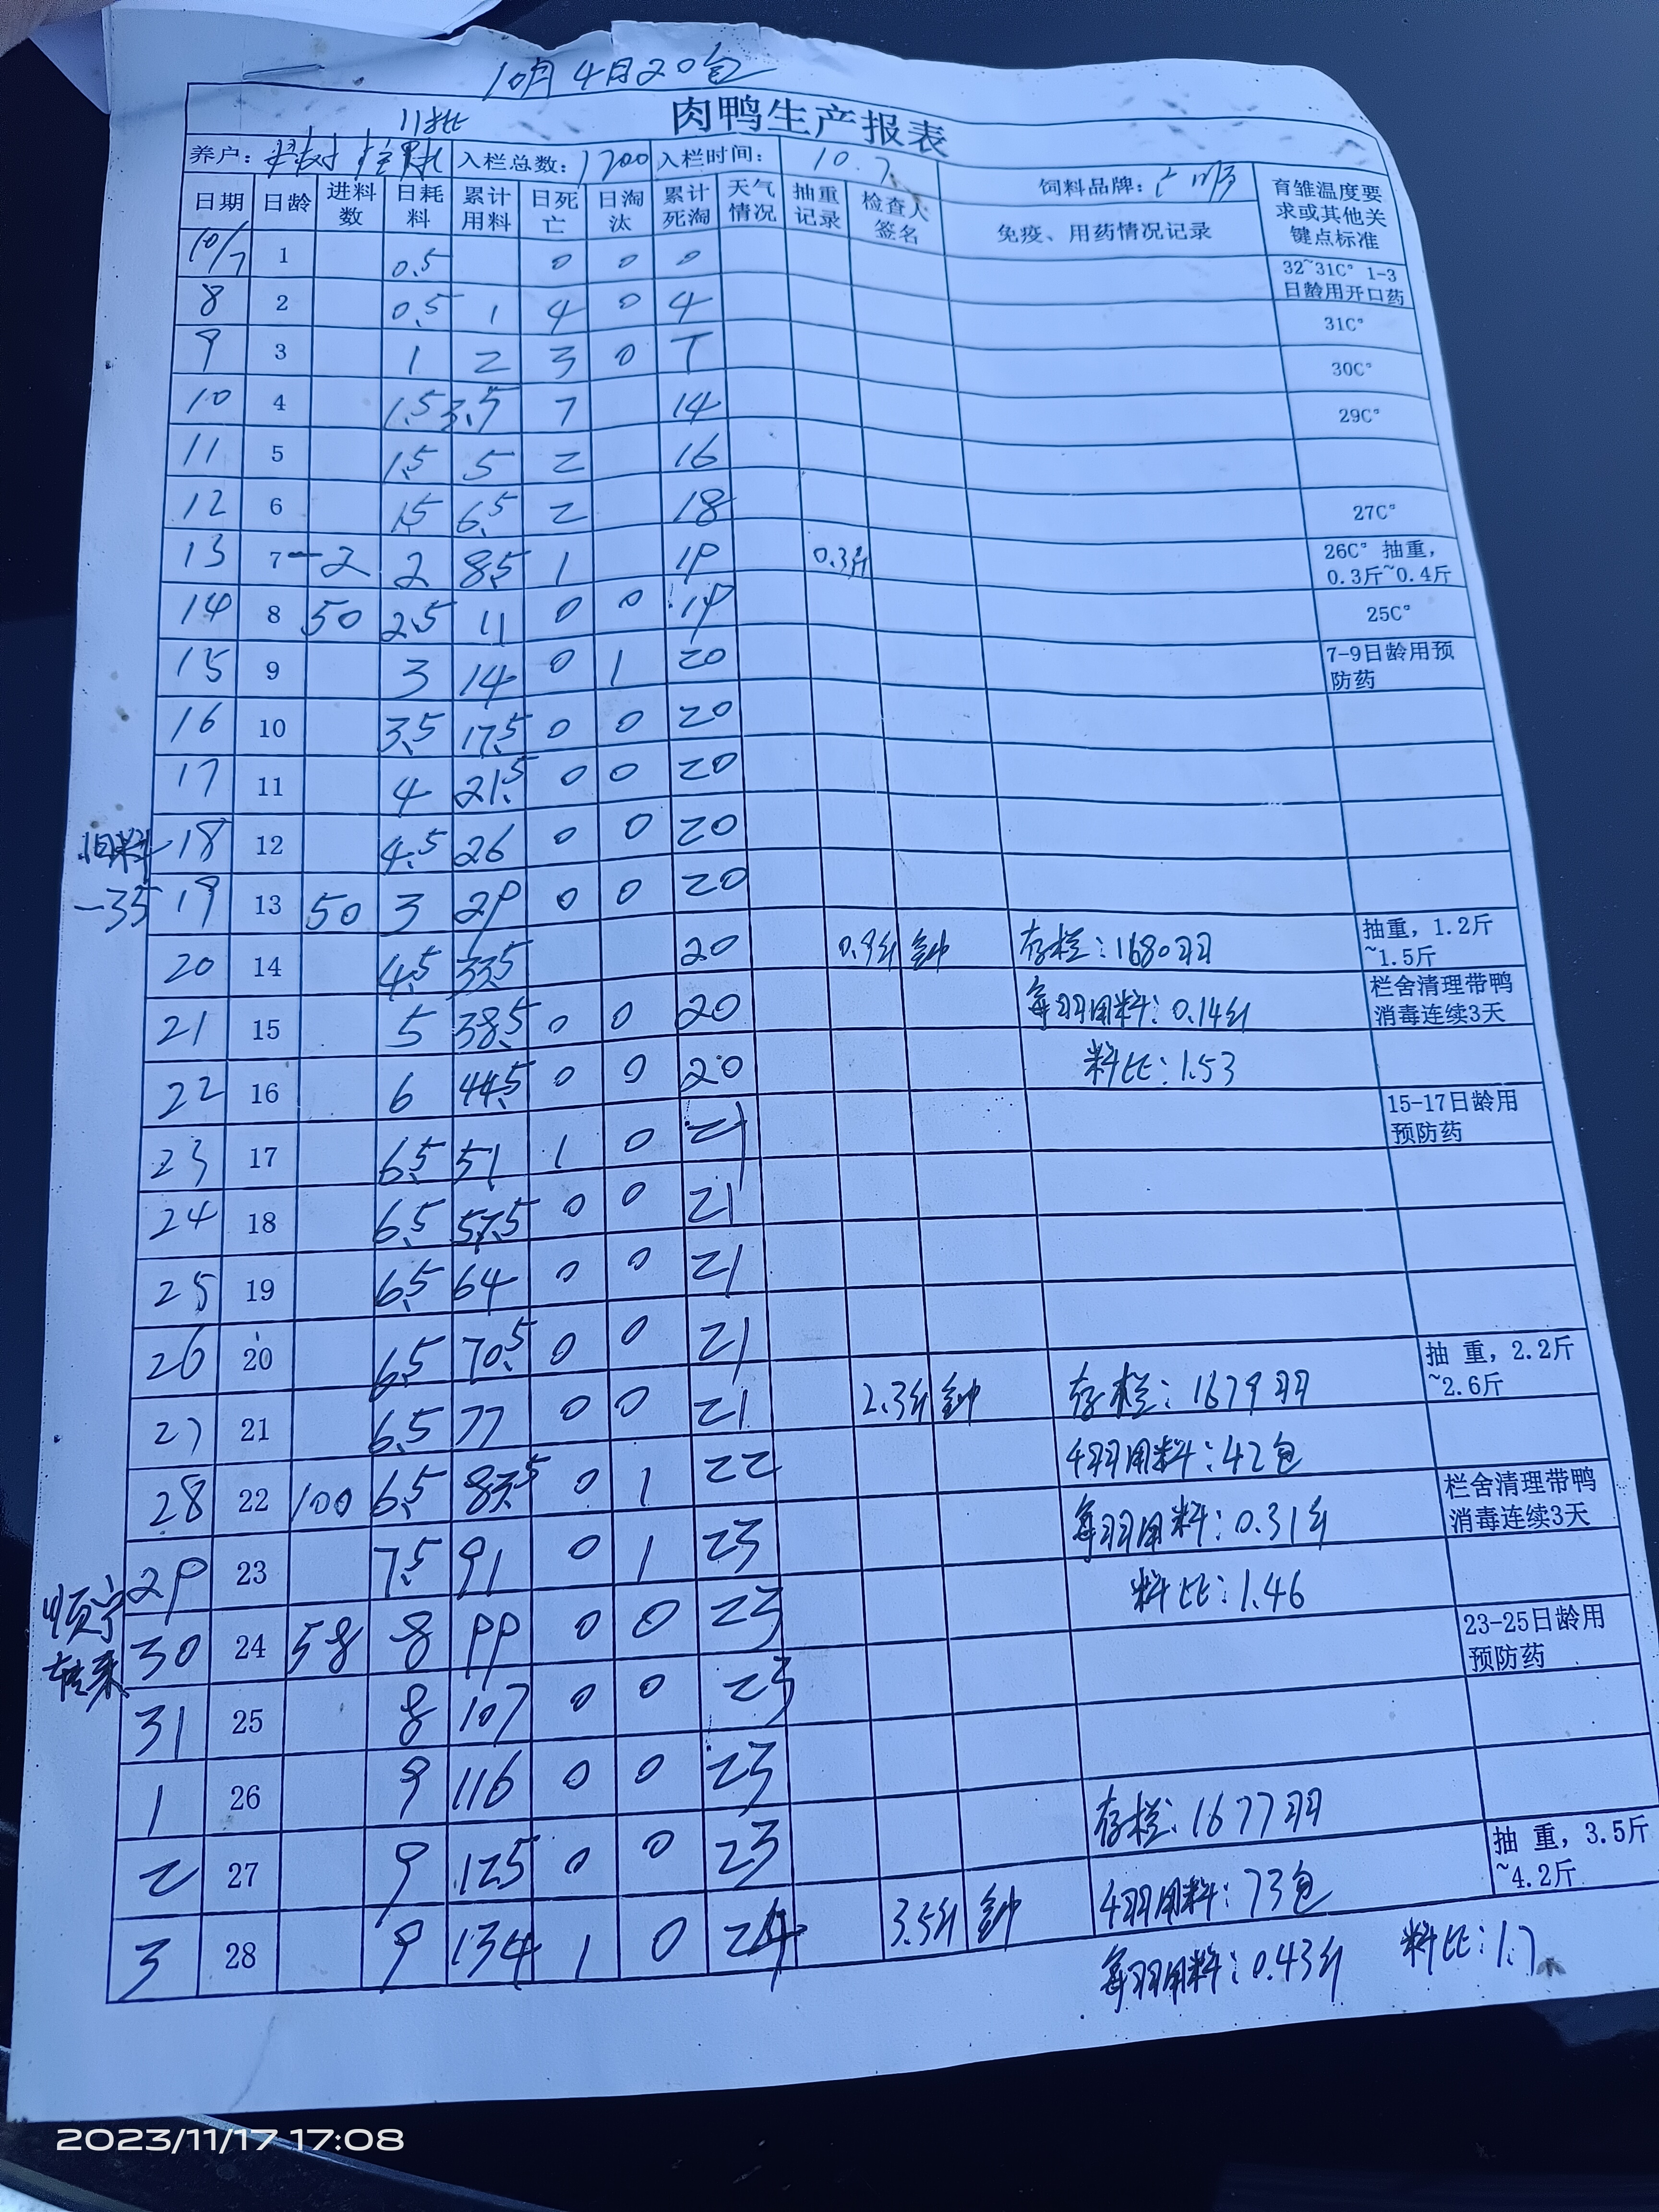 10月4日20包
肉鸭生产报表
11批
养户: 入栏总数: 1700 入栏时间: 10.7 饲料品牌:
日期 日龄 进料数 日耗料 累计用料 日死亡 日淘汰 累计死淘 天气情况 抽重记录 检查人签名 免疫、用药情况记录 育雏温度要求或其他关键点标准
10/7 1 0.5 0 0 0 32~31C° 1-3日龄用开口药
8 2 0.5 1 4 0 4 31C°
9 3 1 2 3 0 7 30C°
10 4 1.5 3.5 7 14 29C°
11 5 1.5 5 2 16
12 6 1.5 6.5 2 18 27C°
13 7 -2 2 8.5 1 19 0.3斤 26C° 抽重，0.3斤~0.4斤
14 8 50 2.5 11 0 0 19 25C°
15 9 3 14 0 1 20 7-9日龄用预防药
16 10 3.5 17.5 0 0 20
17 11 4 21.5 0 0 20
旧料 18 12 4.5 26 0 0 20
-35 19 13 50 3 29 0 0 20
20 14 4.5 33.5 20 0.9斤 钟 存栏：1680羽 抽重，1.2斤~1.5斤
21 15 5 38.5 0 0 20 每羽用料：0.14斤 栏舍清理带鸭消毒连续3天
22 16 6 44.5 0 0 20 料比：1.53
23 17 6.5 51 1 0 21 15-17日龄用预防药
24 18 6.5 57.5 0 0 21
25 19 6.5 64 0 0 21
26 20 6.5 70.5 0 0 21
27 21 6.5 77 0 0 21 2.3斤 钟 存栏：1679羽 抽 重，2.2斤~2.6斤
28 22 100 6.5 83.5 0 1 22 4羽用料：42包 栏舍清理带鸭消毒连续3天
29 23 7.5 91 0 1 23 每羽用料：0.31斤
顺宁转来 30 24 58 8 99 0 0 23 料比：1.46 23-25日龄用预防药
31 25 8 107 0 0 23
1 26 9 116 0 0 23
2 27 9 125 0 0 23 存栏：1677羽
3 28 9 134 1 0 24 3.5斤 钟 4羽用料：73包 抽 重，3.5斤~4.2斤
每羽用料：0.43斤 料比：1.7
2023/11/17 17:08